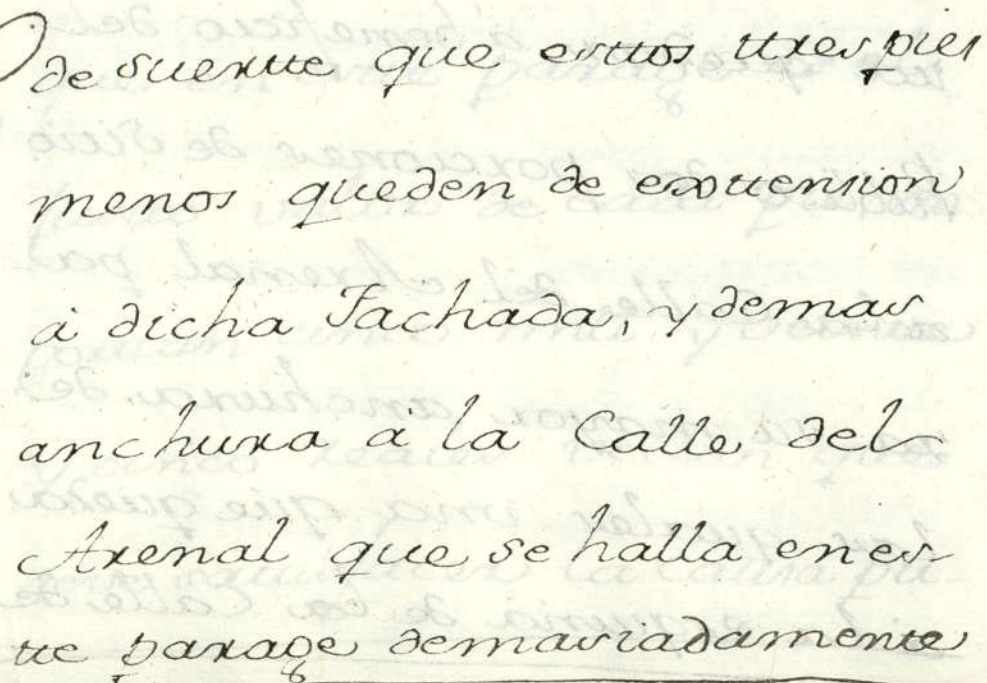 de suerte que estos tres pies
menos queden de extension
à dicha Fachada, y demas
anchura à la Calle del
Arenal que se halla en es-
te parage demasiadamente